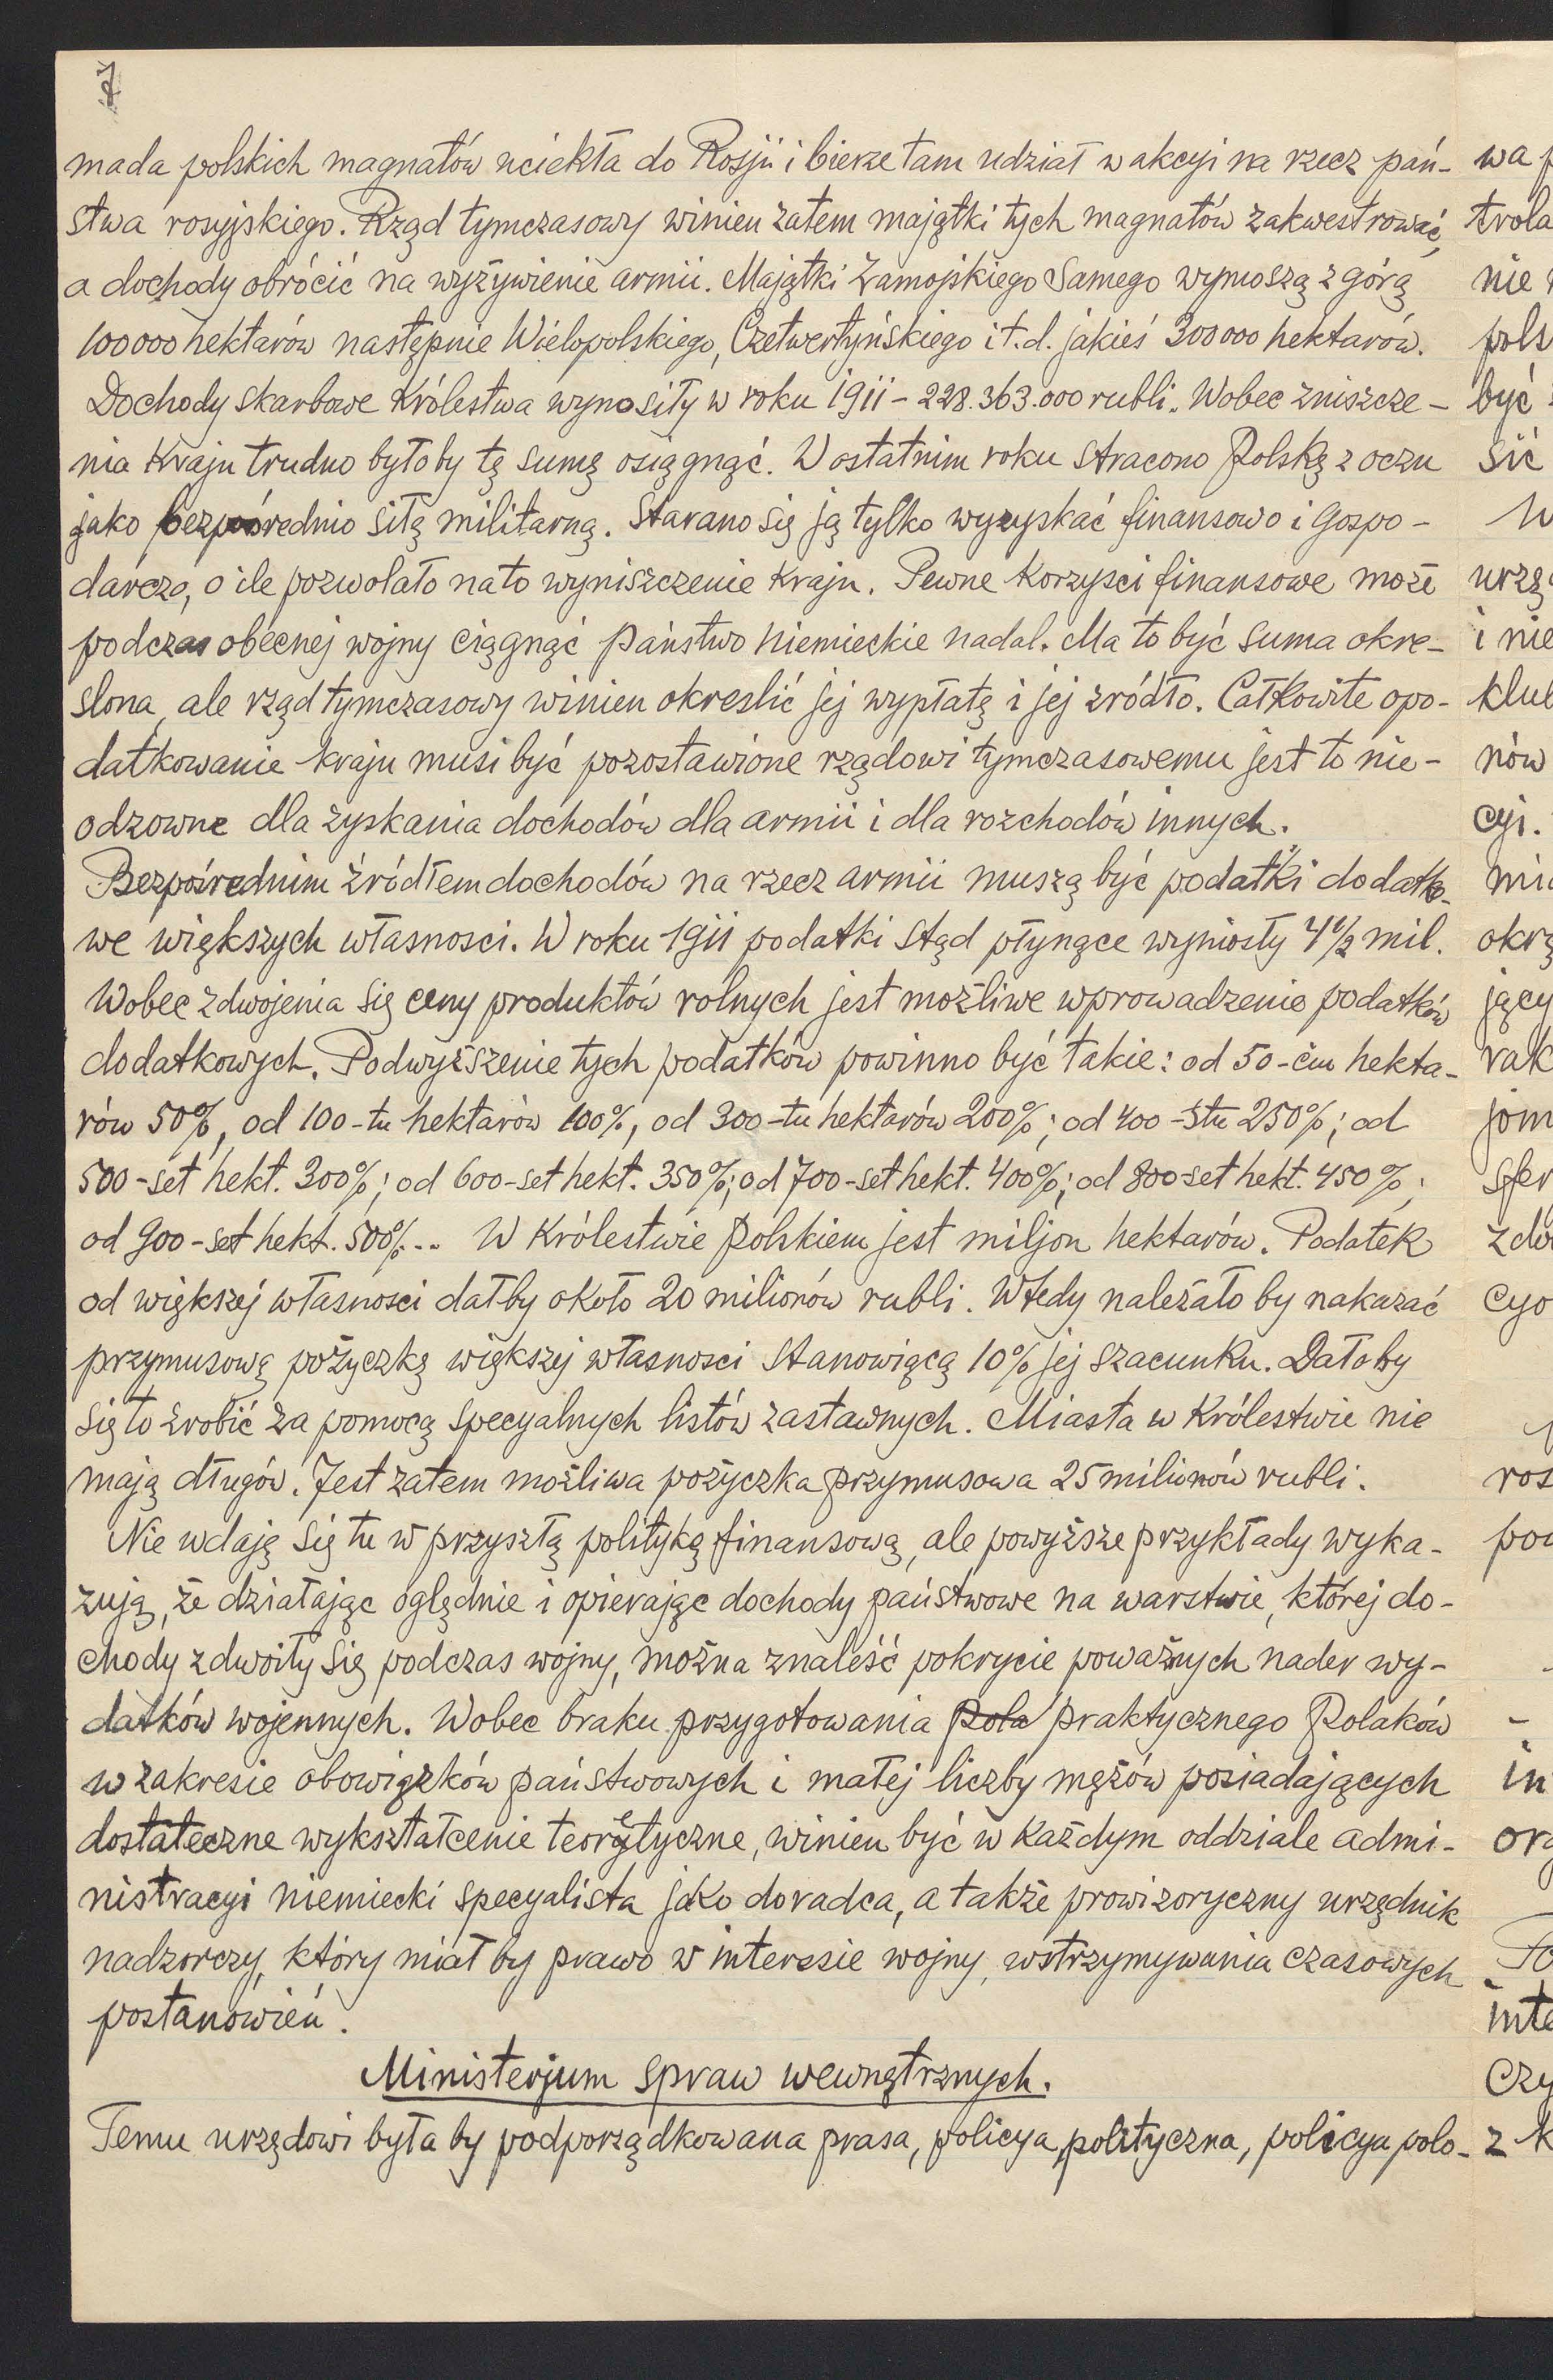 7
mada polskich magnatów uciekła do Rosji i bierze tam udział w akcyi na rzecz pań-
stwa rosyjskiego. Rząd tymczasowy winien zatem majątki tych magnatów zakwestrować,
a dochody obrócić na wyżywienie armii. Majątki Zamojskiego Samego wynoszą z górą
100000 hektarów następnie Wielopolskiego, Czetwertyńskiego i t. d. jakieś 300000 hektarów.
Dochody skarbowe Królestwa wynosiły w roku 1911 - 228.363.000 rubli. Wobec zniszcze-
nia Kraju trudno byłoby tę sumę osiągnąć. W ostatnim roku stracono Polskę z oczu
jako bezpośrednio siłę militarną. Starano się ją tylko wyzyskać finansowo i gospo-
darczo, o ile pozwolało na to wyniszczenie Kraju. Pewne Korzyści finansowe może
podczas obecnej wojny ciągnąć państwo niemieckie nadal. Ma to być suma okre-
slona, ale rząd tymczasowy winien okreslić jej wypłatę i jej źródło. Całkowite opo-
datkowanie kraju musi być pozostawione rządowi tymczasowemu jest to nie-
odzowne dla zyskania dochodów dla armii i dla rozchodów innych.
Bezpośrednim źródłem dochodów na rzecz armii muszą być podatki dodatko-
we większych własnosci. W roku 1911 podatki stąd płynące wyniosły 4 1/2 mil.
Wobec zdwojenia się ceny produktów rolnych jest możliwe wprowadzenie podatków
dodatkowych. Podwyższenie tych podatków powinno być takie: od 50-ciu hekta-
rów 50%, od 100-tu hektarów 100%, od 300-tu hektarów 200%; od 400-stu 250%; od
500-set hekt. 300%; od 600-set hekt. 350%; od 700-set hekt. 400%; od 800-set hekt. 450%;
od 900-set hekt. 500%... W Królestwie Polskiem jest miljon hektarów. Podatek
od większej własności dałby około 20 milionów rubli. Wtedy należało by nakazać
przymusową pożyczkę większej własnosci stanowiącą 10% jej szacunku. Dało by
się to zrobić za pomocą specyalnych listów zastawnych. Miasta w Królestwie nie
mają długów. Jest zatem możliwa pożyczka przymusowa 25 milionów rubli.
Nie wdaję się tu w przyszłą politykę finansową, ale powyższe przykłady wyka-
zują, że działając oględnie i opierając dochody państwowe na warstwie, której do-
chody zdwoiły się podczas wojny, można znaleść pokrycie poważnych nader wy-
datków wojennych. Wobec braku przygotowania Pola praktycznego Polaków
w zakresie obowiązków państwowych i małej liczby mężów posiadających
dostateczne wykształcenie teoretyczne, winien być w każdym oddziale admi-
nistracyi niemiecki specyalista jako doradca, a także prowizoryczny urzędnik
nadzorczy, który miał by prawo w interesie wojny, wstrzymywania czasowych
postanowień.
Ministerjum spraw wewnętrznych.
Temu urzędowi była by podporządkowana prasa, policya, polityczna, policya polo-